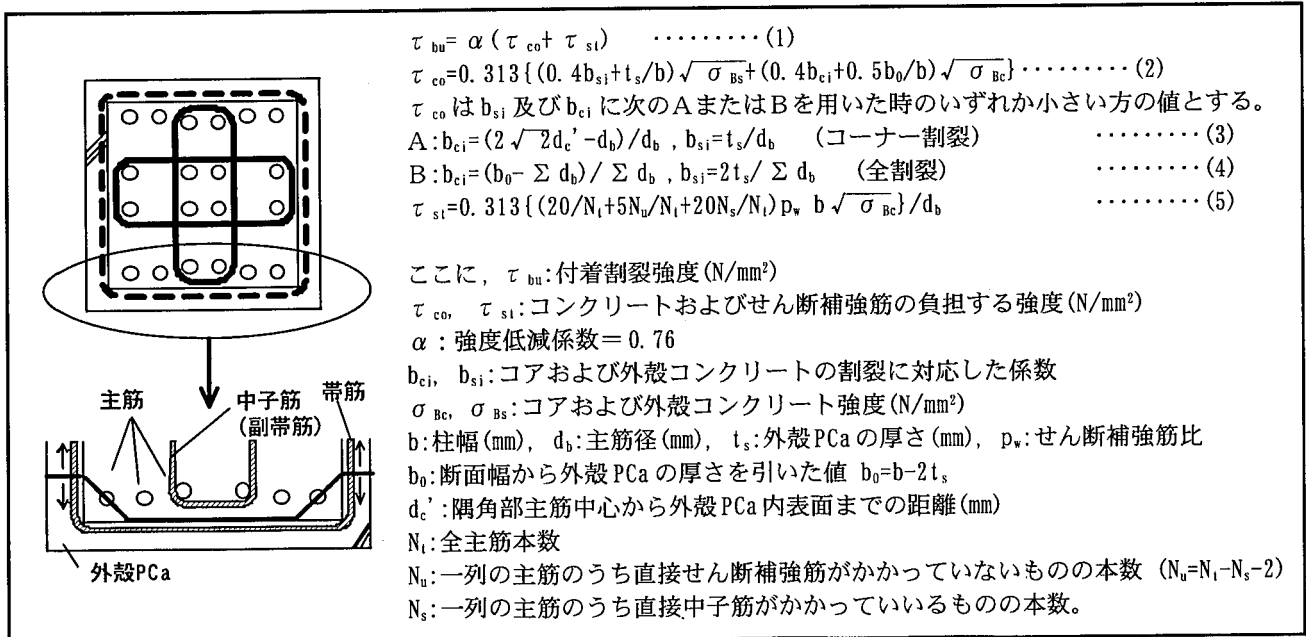 τbu= α(τco+ τst) ·········(1)
τco=0.313{(0.4bsi+ts/b)√σBs+(0.4bci+0.5b0/b)√σBc}·········(2)
τcoはbsi及びbciに次のAまたはBを用いた時のいずれか小さい方の値とする。
A:bci=(2√2dc'-db)/db , bsi=ts/db (コーナー割裂) ·········(3)
B:bci=(b0- Σdb)/ Σdb , bsi=2ts/ Σdb (全割裂) ·········(4)
τst=0.313{(20/Nt+5Nu/Nt+20Ns/Nt)pw b√σBc}/db ·········(5)
ここに, τbu:付着割裂強度(N/mm²)
τco, τst:コンクリートおよびせん断補強筋の負担する強度(N/mm²)
α:強度低減係数=0.76
bci, bsi:コアおよび外殻コンクリートの割裂に対応した係数
σBc, σBs:コアおよび外殻コンクリート強度(N/mm²)
b:柱幅(mm), db:主筋径(mm), ts:外殻PCaの厚さ(mm), pw:せん断補強筋比
b0:断面幅から外殻PCaの厚さを引いた値 b0=b-2ts
dc':隅角部主筋中心から外殻PCa内表面までの距離(mm)
Nt:全主筋本数
Nu:一列の主筋のうち直接せん断補強筋がかかっていないものの本数 (Nu=Nt-Ns-2)
Ns:一列の主筋のうち直接中子筋がかかっていいるものの本数。
主筋
中子筋
(副帯筋)
帯筋
外殻PCa